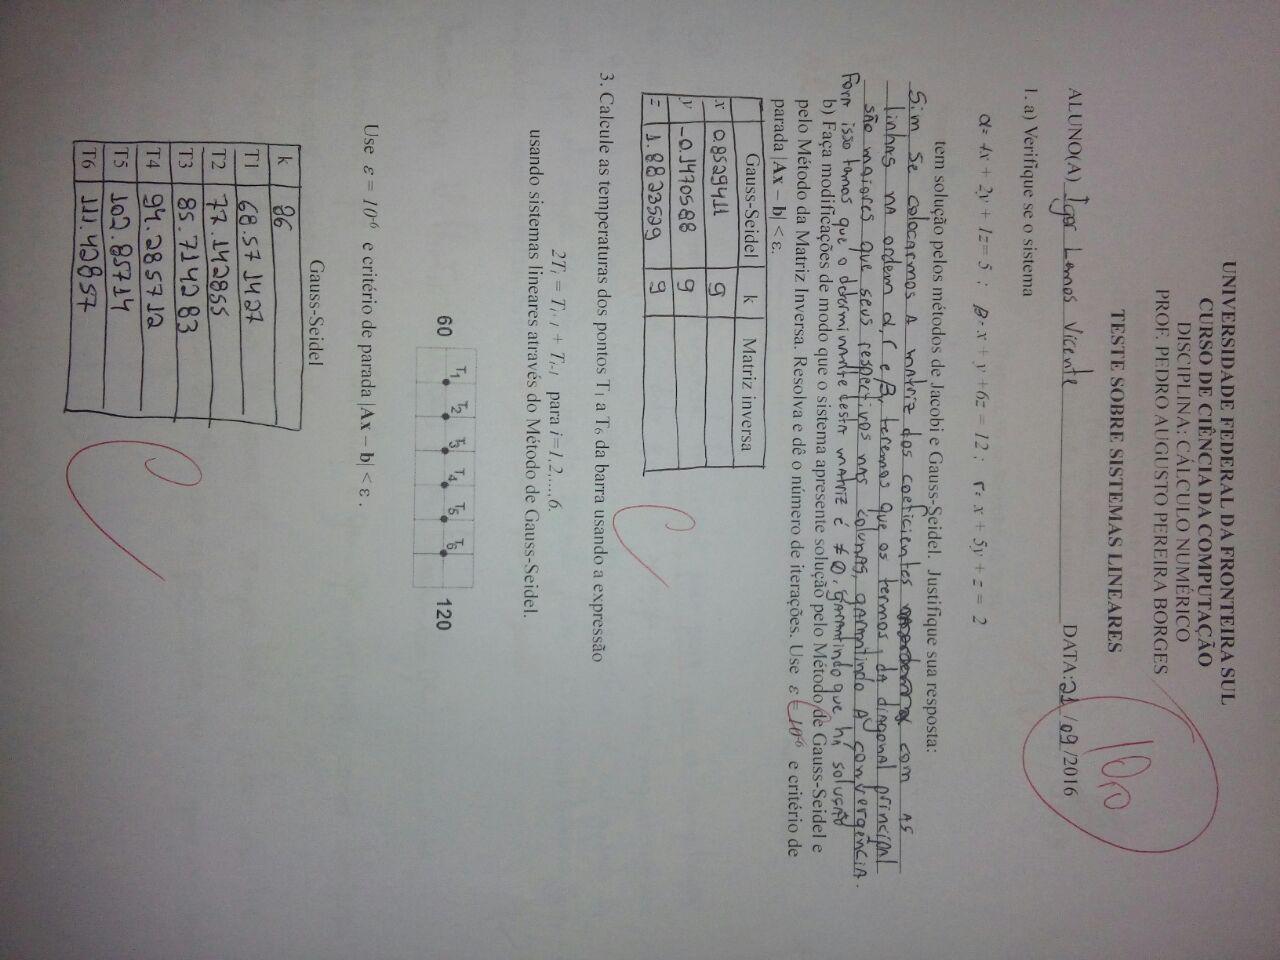 UNIVERSIDADE FEDERAL DA FRONTEIRA SUL
CURSO DE CIÊNCIA DA COMPUTAÇÃO
DISCIPLINA: CÁLCULO NUMÉRICO
PROF. PEDRO AUGUSTO PEREIRA BORGES
10,0
TESTE SOBRE SISTEMAS LINEARES
ALUNO(A) Igor Lemos Vicente DATA: 21/09/2016
1. a) Verifique se o sistema
α= 4x + 2y + 1z= 5 ; β= x + y +6z = 12 ; r= x + 5y + z = 2
tem solução pelos métodos de Jacobi e Gauss-Seidel. Justifique sua resposta:
Sim, se colocarmos a matriz dos coeficientes com as
linhas na ordem α, r e β, teremos que os termos da diagonal principal
são maiores que seus respectivos nas colunas, garantindo a convergência.
Fora isso temos que o determinante desta matriz é ≠ 0, garantindo que há solução
b) Faça modificações de modo que o sistema apresente solução pelo Método de Gauss-Seidel e
pelo Método da Matriz Inversa. Resolva e dê o número de iterações. Use ε = 10⁻⁶ e critério de
parada |Ax – b| < ε.
Gauss-Seidel k Matriz inversa
x 0.8529411 9
y -0.1470588 9
z 1.8823529 9
C
3. Calcule as temperaturas dos pontos T₁ a T₆ da barra usando a expressão
2Tᵢ = Tᵢ₊₁ + Tᵢ₋₁ para i=1,2,...,6.
usando sistemas lineares através do Método de Gauss-Seidel.
60 T₁ T₂ T₃ T₄ T₅ T₆ 120
Use ε = 10⁻⁶ e critério de parada |Ax – b| < ε .
Gauss-Seidel
k 86
T1 68.571427
T2 77.142855
T3 85.714283
T4 94.285712
T5 102.85714
T6 111.42857
C